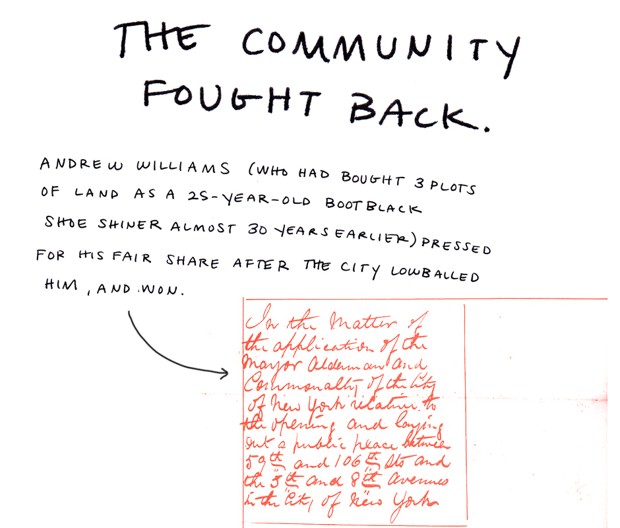 THE COMMUNITY
FOUGHT BACK.
ANDREW WILLIAMS (WHO HAD BOUGHT 3 PLOTS
OF LAND AS A 25-YEAR-OLD BOOTBLACK
SHOE SHINER ALMOST 30 YEARS EARLIER) PRESSED
FOR HIS FAIR SHARE AFTER THE CITY LOWBALLED
HIM, AND WON.
In the Matter of
the application of the
Mayor Alderman and
Commonalty of the City
of New York relative to
the opening and laying
out a public place between
59th and 106th Sts and
the 5th and 8th avenues
in the City of New York